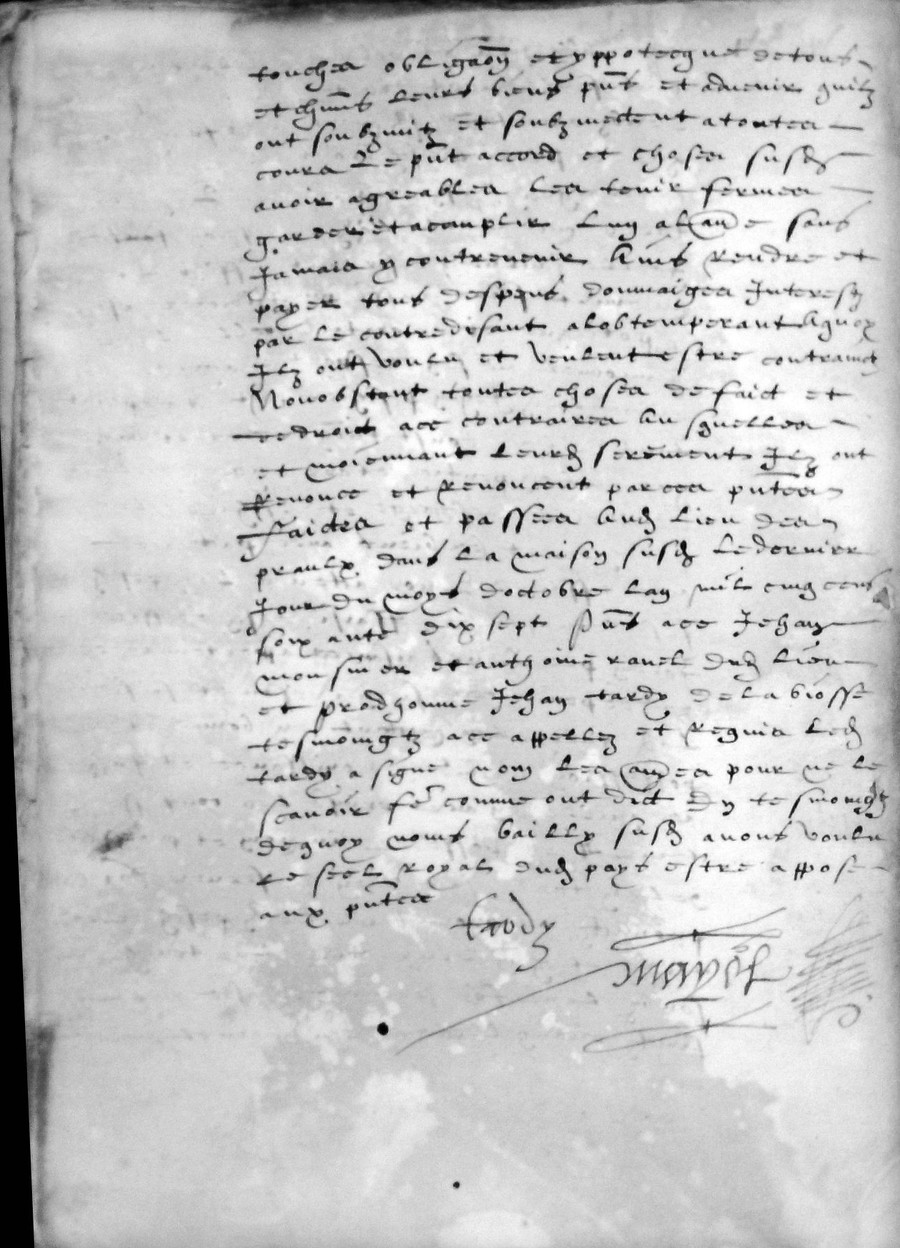 touches obliga͠on et yppotecque de tous
et chũns leurs biens pñs et advenir quilz
ont soubzmitz et soubzmectent a toutes
cours Le pñt accord et choses susd
avoir agreables les tenir fermes
garder et acomplir Lun al'au͠e sans
Jamais y contrevenir Ains rendre et
payer tous despens dommaiges Interestz
par le contredisant a lobtemperant A quoy
Ilz ont voulu et veulent estre contrainctz
Nonobstant toutes choses de faict et
de droict a ce contraires Ausquelles
et moiennant leurd serement Ilz ont
Renoncé et renoncent par ces pñtes
Faictes et passees Aud lieu des
praulx dans la maison susd Le dernier
Jour du moys doctobre Lan mil cinq cens
soixante dix sept Pñs a ce Jehan
monsnier et anthoine ravel dud Lieu
et prodhomme Jehan tardy de la biosse
tesmoingtz a ce appellez et Requis Led
tardy a signe non les au͠es pour ne le
scavoir fẽ comme ont dict En tesmoingtz
dequoy nous bailly susd avons voulu
Le seel royal dud pays estre appose
aux pñtes
tardy
mayol